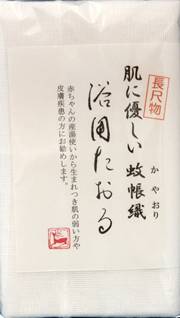 長尺物
肌に優しい 蚊帳織
かやおり
浴用たおる
赤ちゃんの産湯使いから生まれつき肌の弱い方や
皮膚疾患の方にお勧めします。